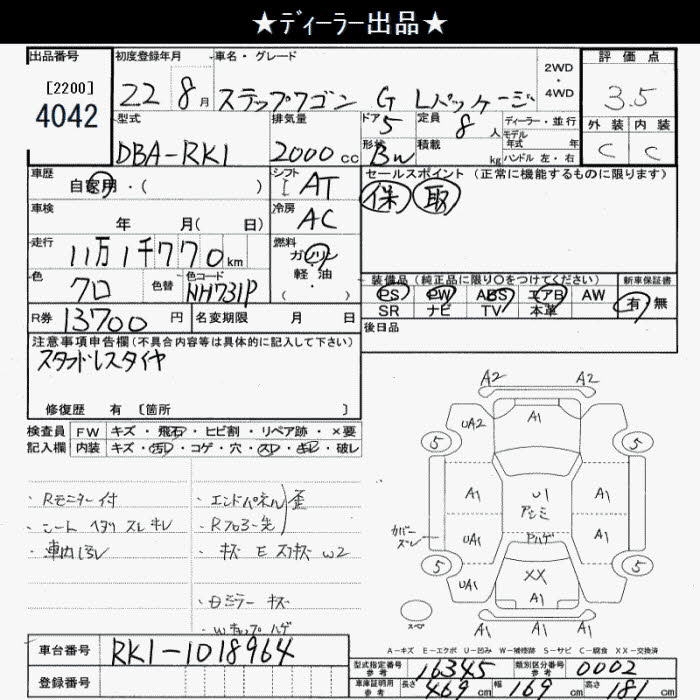 ★ディーラー出品★
出品番号
[2200]
4042
初度登録年月
22 8月
車名・グレード
ステップワゴン G Lパッケージ
2WD
・
4WD
評価点
3.5
外装 内装
C C
型式
DBA-RK1
排気量
2000cc
ドア
5
形状
Bw
定員
8人
積載
kg
ディーラー・並行
モデル
年式 年
ハンドル 左・右
車歴
自家用・( )
シフト
I AT
セールスポイント (正常に機能するものに限ります)
保 取
車検
年 月( 日)
冷房
AC
走行
11万1千770km
燃料
ガソリン
軽・油
( ・ )
色
クロ
色替
色コード
NH731P
装備品(純正品に限り○をつけてください)
PS PW ABS エアB AW
SR ナビ TV 本革
新車保証書
有 無
R券 13700円
名変期限 月 日
後日品
注意事項申告欄(不具合内容等は具体的に記入して下さい)
スタッドレスタイヤ
修復歴 有 [箇所 ]
検査員 FW キズ・飛石・ヒビ割・リペア跡・×要
記入欄 内装 キズ・汚れ・コゲ・穴・スレ・キレ・破レ
・Rモニター付
・シート ヘタリ スレ キレ
・車内汚レ
・エンドパネル 歪
・Rフロアー先
・キズ E スリキズ W2
・Dミラー キズ
・Wキャップ ハゲ
A2 A2
UA2 A1
5 5
A1 U1 A1
アンミ
カバー
ズレ
UA1 ハゲ A1
5 5
UA1 XX
A1
A1 A1 A1
スペア
A-キズ E-エクボ U-凹み W-補修跡 S-サビ C-腐食 XX-交換済
車台番号 RK1-1018964
登録番号
型式指定番号
参考
16345
類別区分番号
参考
0002
車庫証明用
参考
長さ 469cm
幅 169cm
高さ 181cm